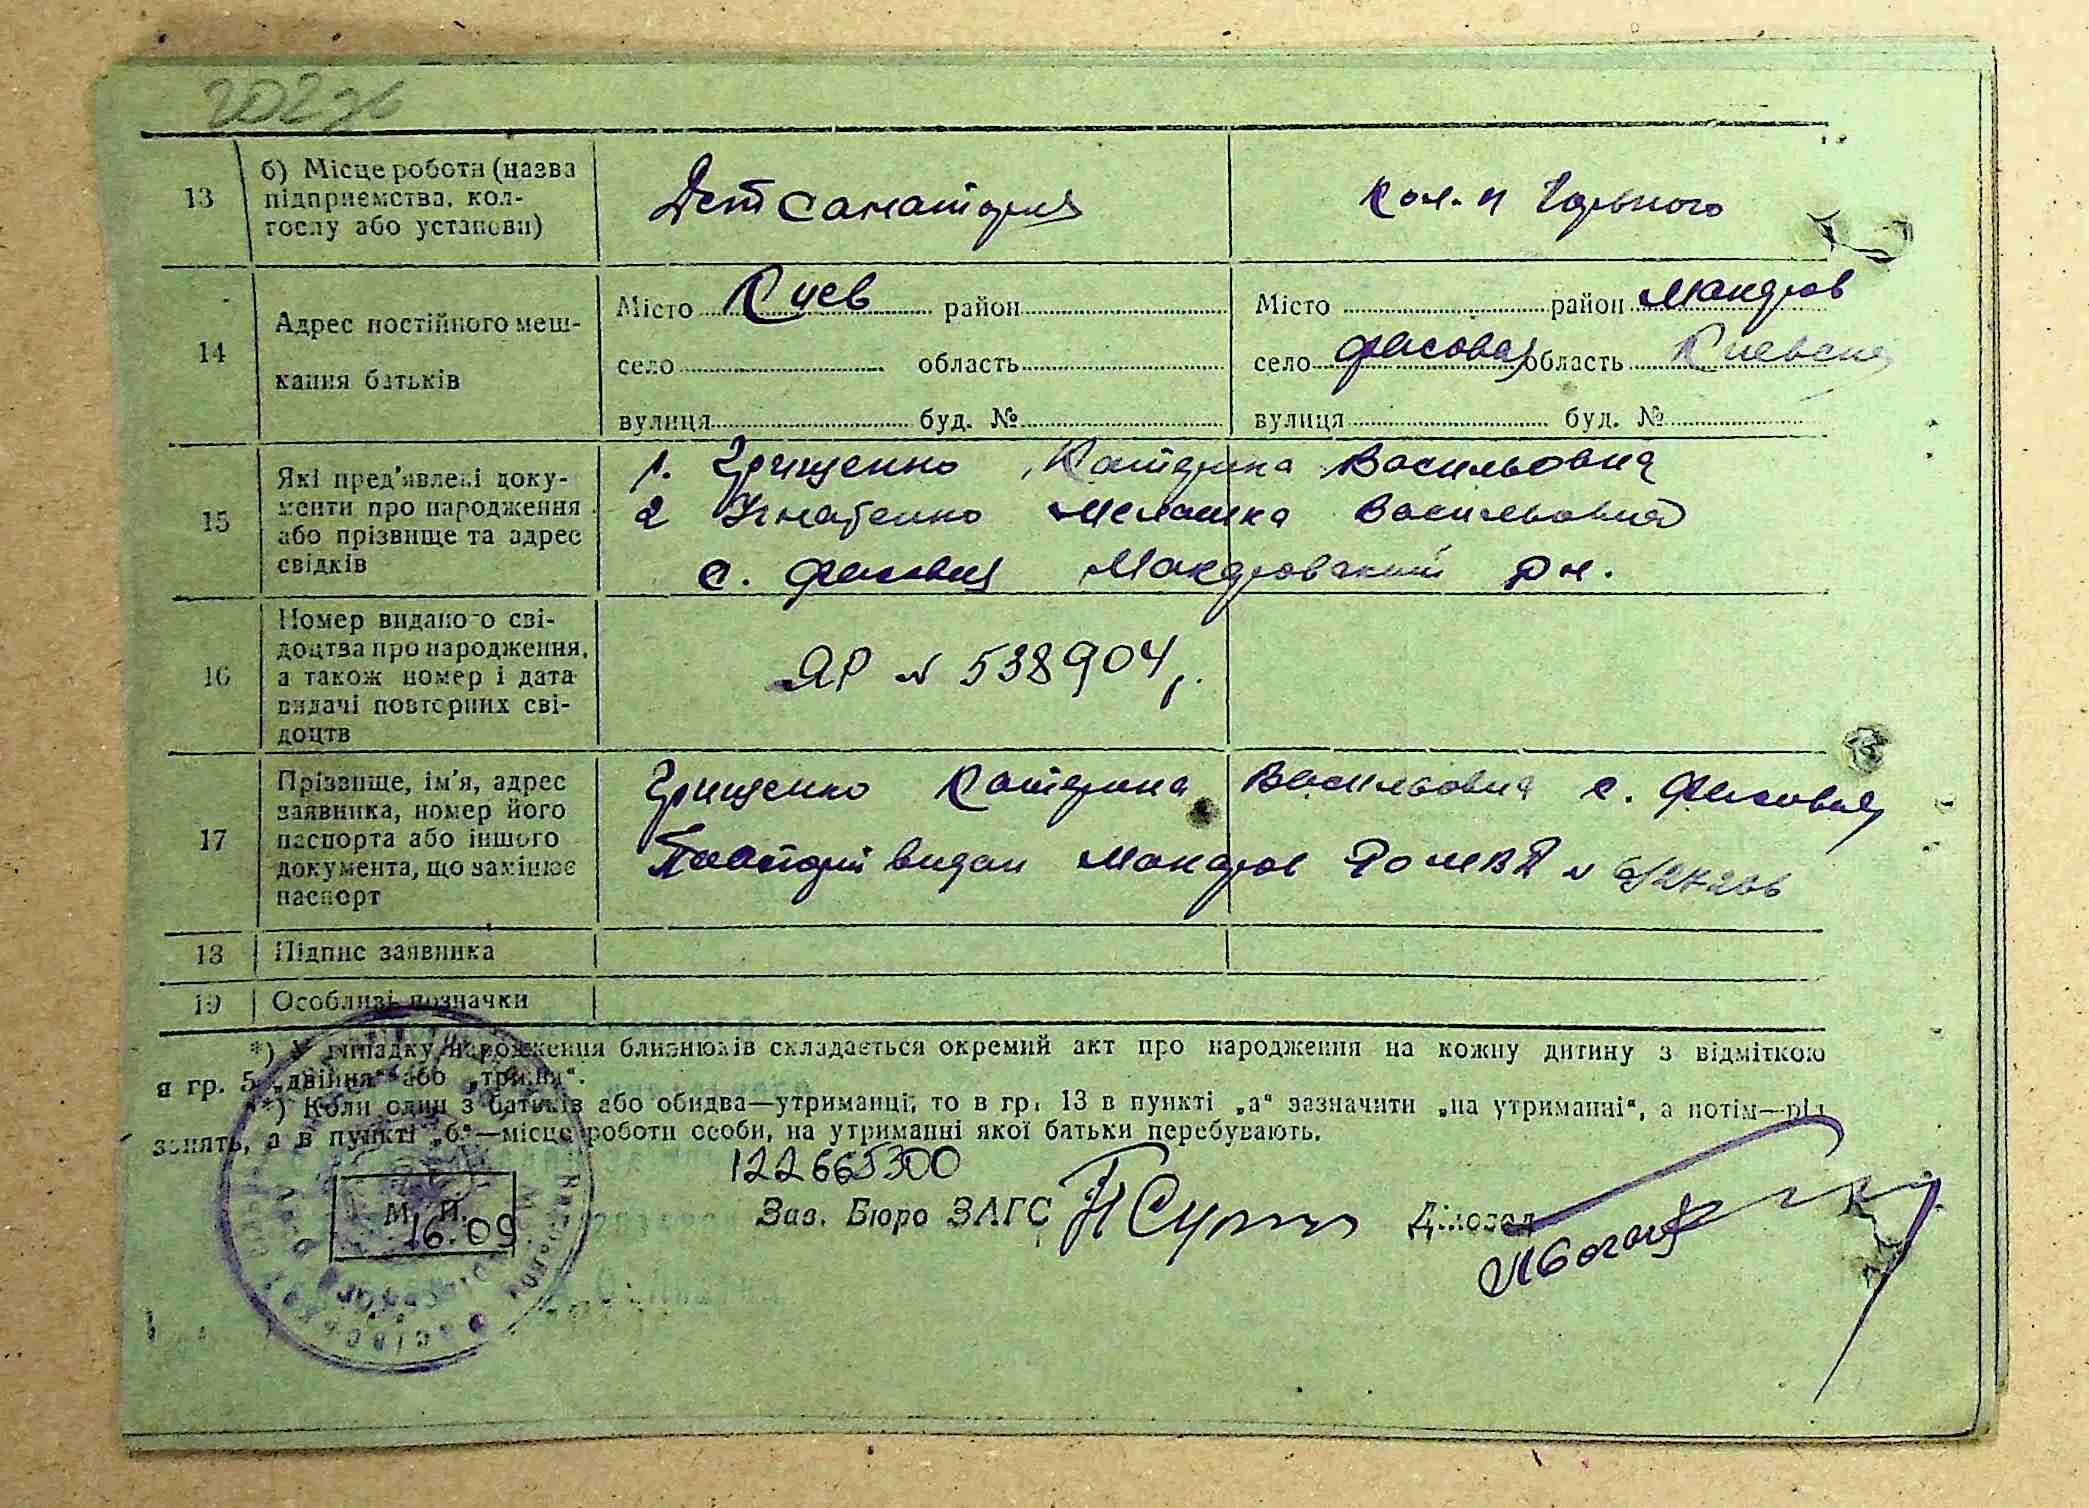 13
б) Місце роботи (назва
підприємства, кол-
госпу або установи)
Детсанатория
кол-п Горького
14
Адрес постійного меш-
кання батьків
Місто Киев район
село область
вулиця буд. №
Місто район Макаров
село Фасовая область Киевська
вулиця буд. №
15
Які пред'явлені доку-
менти про народження
або прізвище та адрес
свідків
1. Грищенко Катерина Васильовна
2 Игнатенко Мелашка Васильовна
с. Фасовая Макаровский рн.
16
Номер виданого сві-
доцтва про народження,
а також номер і дата
видачі повторних сві-
доцтв
ЯР № 538904
17
Прізвище, ім'я, адрес
заявника, номер його
паспорта або іншого
документа, що замінює
паспорт
Грищенко Катерина Васильовна с. Фасовая
Паспорт видан Макаров РО МВД №
18
Підпис заявника
19
Особливі позначки
*) У випадку народження близнюків складається окремий акт про народження на кожну дитину з відміткою
я гр. 5 „двійня“ або „трійня“.
**) Коли один з батьків або обидва—утриманці, то в гр. 13 в пункті „а“ зазначити „на утриманні“, а потім—рід
занять, а в пункті „б“—місце роботи особи, на утриманні якої батьки перебувають.
122665300
М. П.
16.09
Зав. Бюро ЗАГС
Діловод